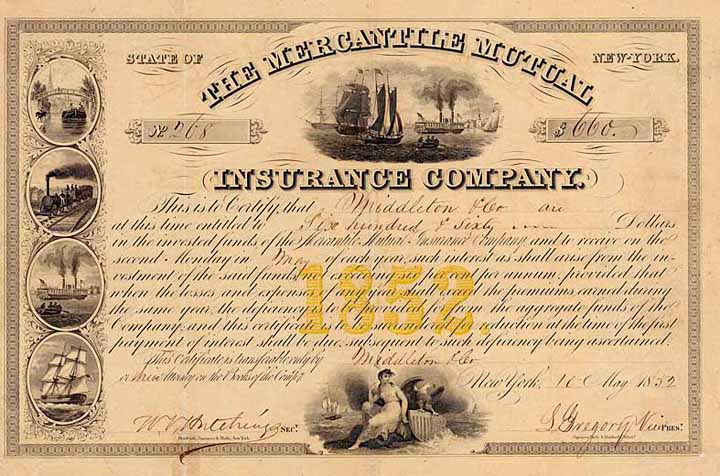 STATE OF
THE MERCANTILE MUTUAL
NEW-YORK.
No. 268
$ 660.
INSURANCE COMPANY.
This is to Certify, that Middleton & Co are
at this time entitled to Six hundred & Sixty Dollars
in the invested funds of the Mercantile Mutual Insurance Company, and to receive on the
second Monday in May of each year, such interest as shall arise from the in-
vestment of the said funds, not exceeding six per cent per annum, provided that
when the losses and expenses in any year shall exceed the premiums earned during
the same year, the deficiency to be the aggregate funds of the
Company, and this certificate reduction at the time of the first
payment of interest shall be due, subsequent to such deficiency being ascertained.
1852.
This Certificate is transferable only by Middleton & Co
or Attorney on the Books of the Comp.y
New York, 10 May 1852
Sec.y
S. Gregory Vice Pres.t